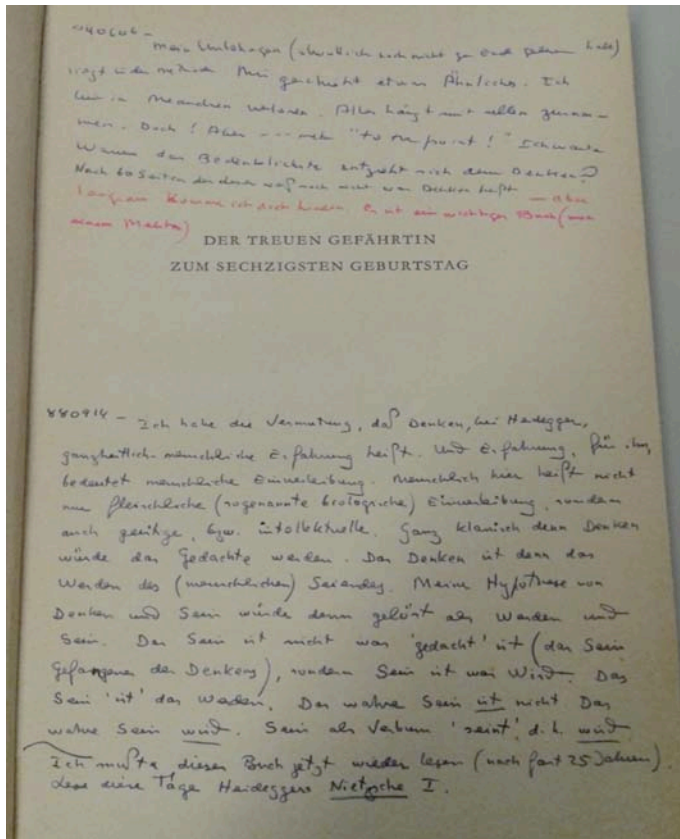 Mein Unbehagen (obwohl ich noch nicht zu Ende gelesen habe)
liegt in der Methode. Mir geschieht etwas Ähnliches. Ich
bin in Meandren verloren. Alles hängt mit allem zusam-
men. Doch! Aber --- mehr "to the point"! Ich warte
Warum das Bedenklichste entzieht sich dem Denken?
Nach 60 Seiten der Leser weiß noch nicht was Denken heißt — aber
langsam komme ich dich hinein. Es ist ein wichtiges Buch (
einem
DER TREUEN GEFÄHRTIN
ZUM SECHZIGSTEN GEBURTSTAG
880914 – Ich habe die Vermutung, daß Denken, bei Heidegger,
ganzheitlich-menschliche Erfahrung heißt. Und Erfahrung, für ihn,
bedeutet menschliche Einverleibung. Menschlich hier heißt nicht
nur fleischliche (sogenannte biologische) Einverleibung, sondern
auch geistige, bzw. intellektuelle. Ganz klassisch denn Denken
würde das Gedachte werden. Das Denken ist denn das
Werden des (menschlichen) Seiendes. Meine Hypothese von
Denken und Sein würde denn gelöst als Werden und
Sein. Das Sein ist nicht was 'gedacht' ist (das Sein
Gefangener des Denkens), sondern Sein ist was Wird. Das
Sein 'ist' das Werden. Das wahre Sein ist nicht. Das
wahre Sein wird. Sein als Verbum 'seint', d.h. wird.
Ich mußte dieses Buch jetzt wieder lesen (nach fast 25 Jahren).
Lese diese Tage Heideggers Nietzsche I.